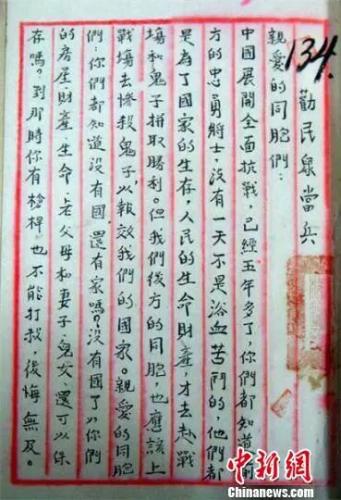 134.
勸民眾當兵
親愛的同胞們：
中國展開全面抗戰，已經五年多了，你們都知道前
方的忠勇將士，沒有一天不是浴血苦鬥的，他們都
是為了國家的生存，人民的生命財產，才去赴戰
場和鬼子拼取勝利。但我們後方的同胞，也應該上
戰場去慘殺鬼子，以報效我們的國家。親愛的同胞
們：你們都知道沒有國，還有家嗎？沒有國了，你們
的房屋，財產，生命，老父母和妻子，兒女，還可以保
存嗎？到那時你有槍桿，也不能打救，後悔無及。
中新网
www.chinanews.com